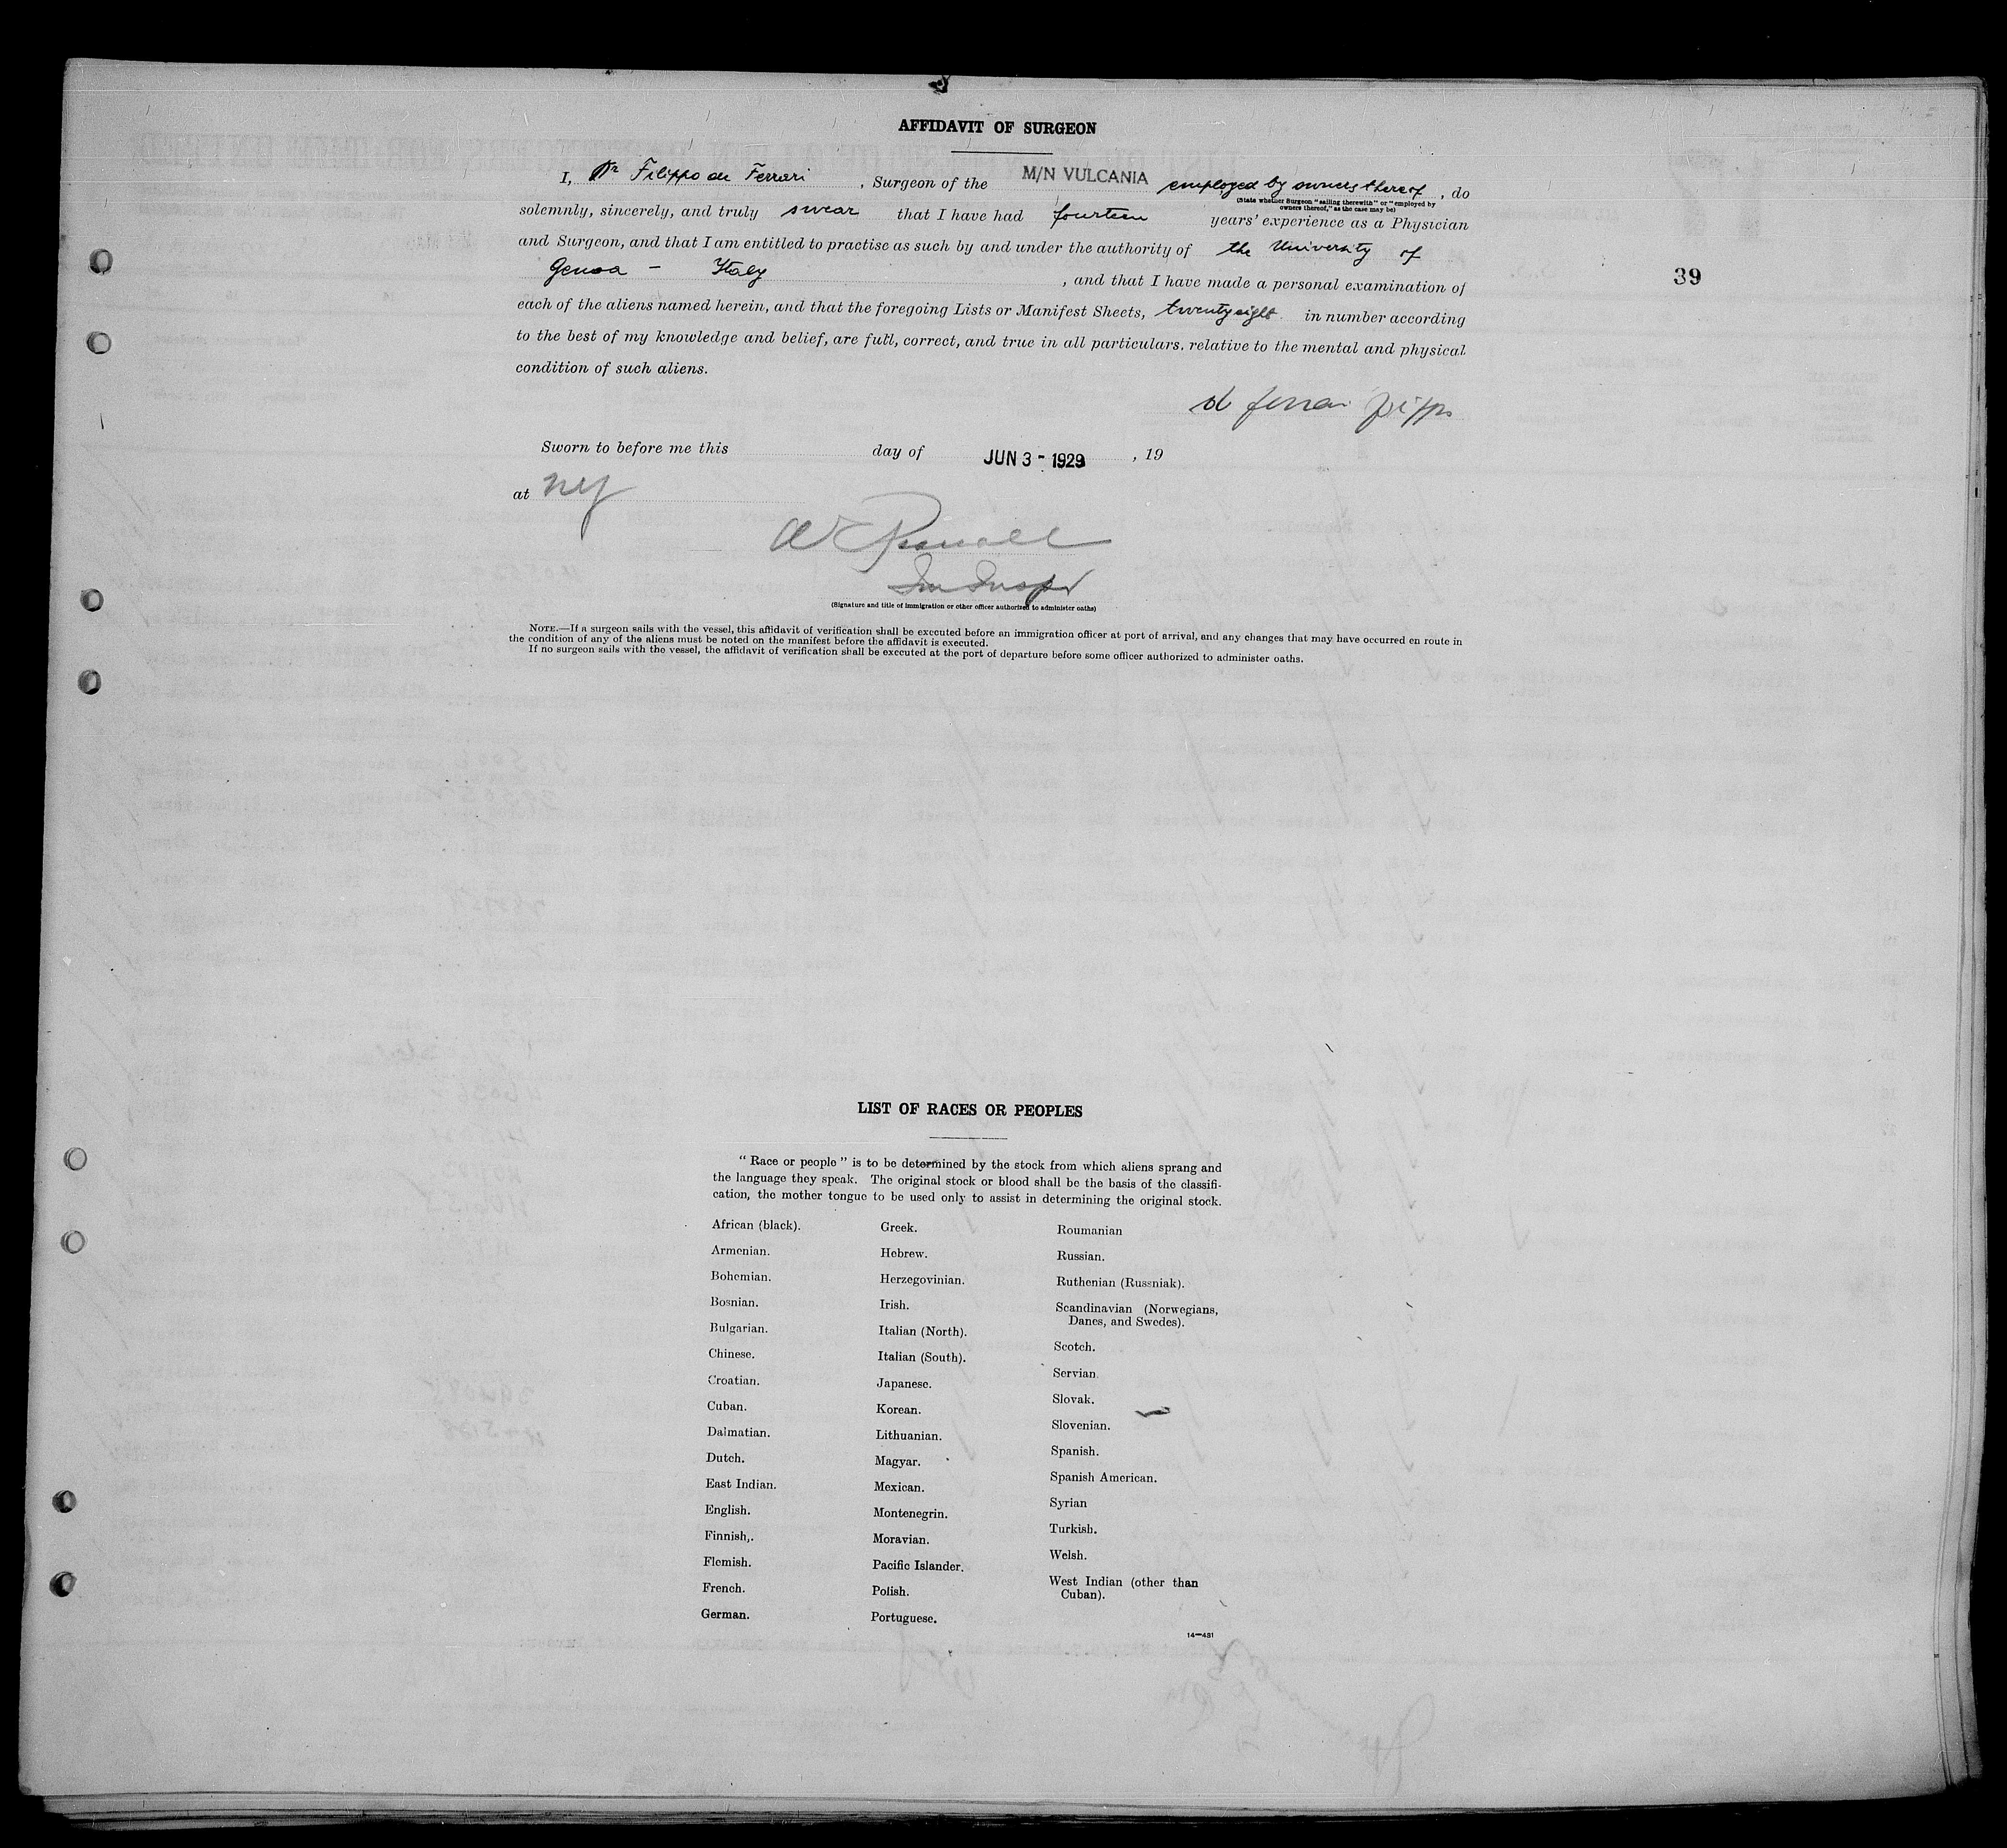 AFFIDAVIT OF SURGEON
I, Dr Filippo de Ferrari, Surgeon of the M/N VULCANIA employed by owners thereof, do
(State whether Surgeon "sailing therewith" or "employed by
owners thereof," as the case may be)
solemnly, sincerely, and truly swear that I have had fourteen years' experience as a Physician
and Surgeon, and that I am entitled to practise as such by and under the authority of the University of
Genoa - Italy, and that I have made a personal examination of
39
each of the aliens named herein, and that the foregoing Lists or Manifest Sheets, twentyeight in number according
to the best of my knowledge and belief, are full, correct, and true in all particulars, relative to the mental and physical
condition of such aliens.
Sworn to before me this day of JUN 3 - 1929, 19
at NY
(Signature and title of immigration or other officer authorized to administer oaths)
NOTE.—If a surgeon sails with the vessel, this affidavit of verification shall be executed before an immigration officer at port of arrival, and any changes that may have occurred en route in
the condition of any of the aliens must be noted on the manifest before the affidavit is executed.
If no surgeon sails with the vessel, the affidavit of verification shall be executed at the port of departure before some officer authorized to administer oaths.
LIST OF RACES OR PEOPLES
"Race or people" is to be determined by the stock from which aliens sprang and
the language they speak. The original stock or blood shall be the basis of the classifi-
cation, the mother tongue to be used only to assist in determining the original stock.
African (black).
Armenian.
Bohemian.
Bosnian.
Bulgarian.
Chinese.
Croatian.
Cuban.
Dalmatian.
Dutch.
East Indian.
English.
Finnish,.
Flemish.
French.
German.
Greek.
Hebrew.
Herzegovinian.
Irish.
Italian (North).
Italian (South).
Japanese.
Korean.
Lithuanian.
Magyar.
Mexican.
Montenegrin.
Moravian.
Pacific Islander.
Polish.
Portuguese.
Roumanian
Russian.
Ruthenian (Russniak).
Scandinavian (Norwegians,
Danes, and Swedes).
Scotch.
Servian
Slovak.
Slovenian.
Spanish.
Spanish American.
Syrian
Turkish.
Welsh.
West Indian (other than
Cuban).
14—431